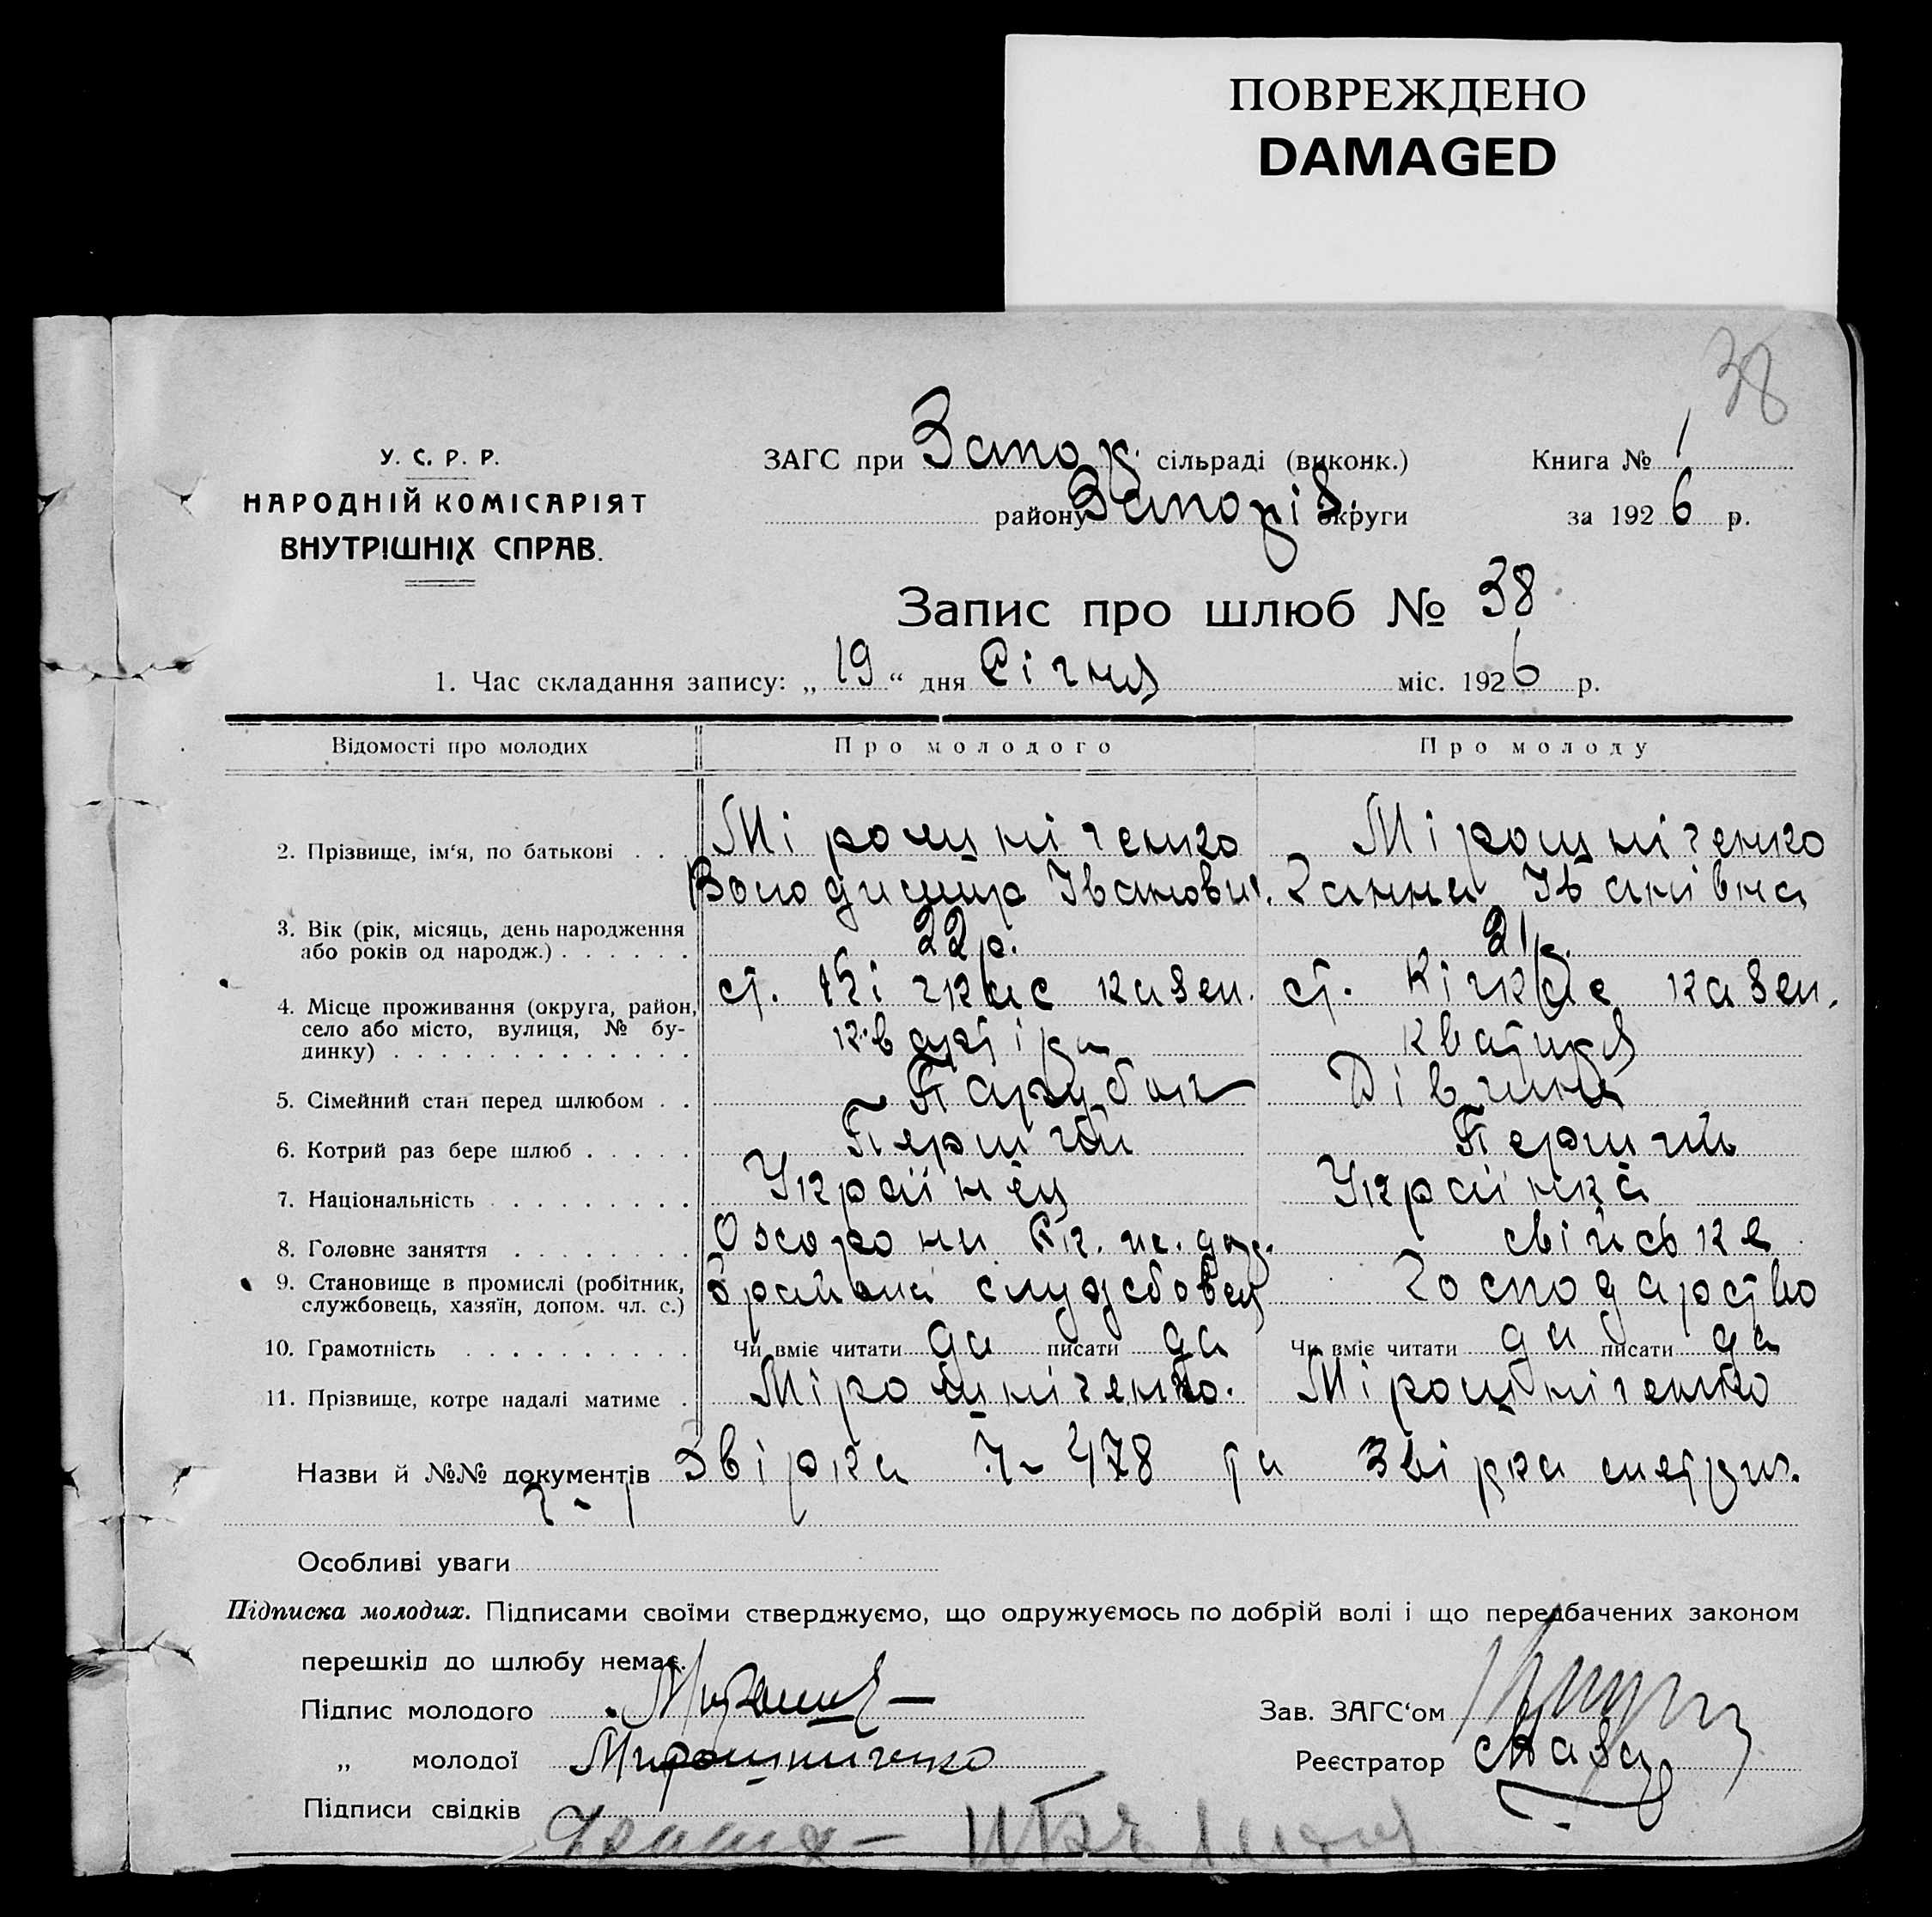 ПОВРЕЖДЕНО
DAMAGED
38
У. С. Р. Р.
НАРОДНІЙ КОМІСАРІЯТ
ВНУТРІШНІХ СПРАВ.
ЗАГС при Запор. сільраді (виконк.)
району Запоріз. округи
Книга № 1
за 1926 р.
Запис про шлюб № 38
1. Час складання запису: „19“ дня Січня міс. 1926 р.
Відомості про молодих Про молодого Про молоду
2. Прізвище, ім‘я, по батькові . . Мірошніченко Мірошніченко
Володимир Іванович. Ганна Іванівна
3. Вік (рік, місяць, день народження
або років од народж.) . . . . . . 22 р. 21 р.
4. Місце проживання (округа, район, ст. Кічкас казен. ст. Кічкас казен.
село або місто, вулиця, № бу-
динку) . . . . . . . . . . . . . квартіра
5. Сімейний стан перед шлюбом . . Парубок Дівчина
6. Котрий раз бере шлюб . . . . . Перший Перший
7. Національність . . . . . . . . . Українец Українка
8. Головне заняття . . . . . . . . Охорони свійське
9. Становище в промислі (робітник,
службовець, хазяїн, допом. чл. с.) службовец господарство
10. Грамотність . . . . . . . . . . Чи вміє читати да писати да Чи вміє читати да писати да
11. Прізвище, котре надалі матиме . Мірошніченко. Мірошніченко
Назви й №№ документів Звірка 478 та Звірка
Особливі уваги
Підписка молодих. Підписами своїми стверджуємо, що одружуємось по добрій волі і що передбачених законом
перешкід до шлюбу немає.
Підпис молодого
„ молодої Мирошниченко
Підписи свідків
Зав. ЗАГС‘ом
Реєстратор